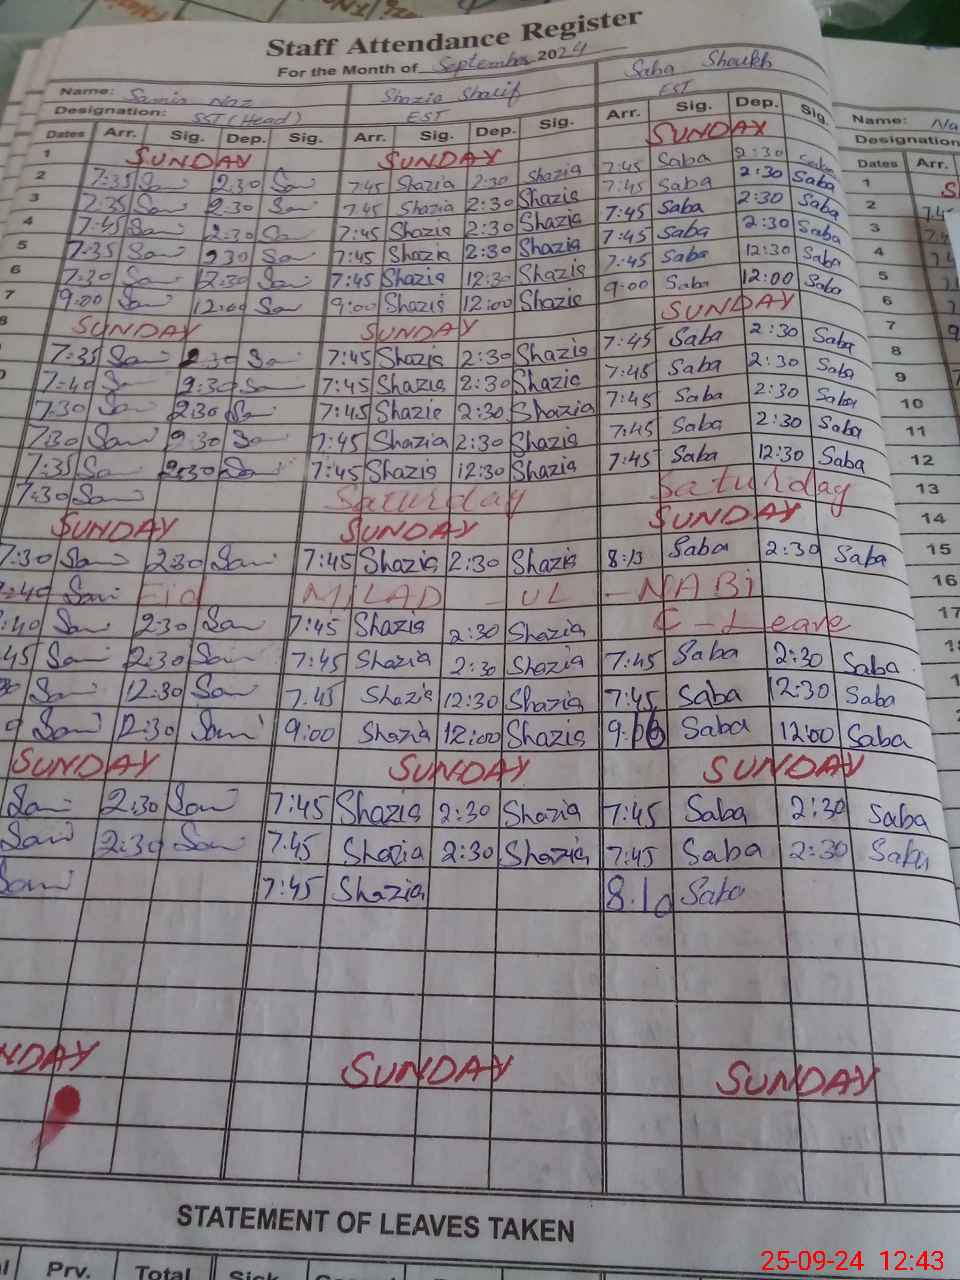 Staff Attendance Register
For the Month of September 2024
Name: Samia Naz Shazia Sharif Saba Shoukh
Designation: SST (Head) EST EST
Dates Arr. Sig. Dep. Sig. Arr. Sig. Dep. Sig. Arr. Sig. Dep. Sig.
1 SUNDAY SUNDAY SUNDAY
2 7:35 Sam 2:30 Sam 7:45 Shazia 2:30 Shazia 7:45 Saba 2:30 Saba
3 7:35 Sam 2:30 Sam 7:45 Shazia 2:30 Shazia 7:45 Saba 2:30 Saba
4 7:45 Sam 2:30 Sam 7:45 Shazia 2:30 Shazia 7:45 Saba 2:30 Saba
5 7:35 Sam 2:30 Sam 7:45 Shazia 2:30 Shazia 7:45 Saba 2:30 Saba
6 7:30 Sam 12:30 Sam 7:45 Shazia 12:30 Shazia 7:45 Saba 12:30 Saba
7 9:00 Sam 12:00 Sam 9:00 Shazia 12:00 Shazia 9:00 Saba 12:00 Saba
8 SUNDAY SUNDAY SUNDAY
7:35 Sam 2:30 Sam 7:45 Shazia 2:30 Shazia 7:45 Saba 2:30 Saba
7:40 Sam 2:30 Sam 7:45 Shazia 2:30 Shazia 7:45 Saba 2:30 Saba
7:30 Sam 2:30 Sam 7:45 Shazia 2:30 Shazia 7:45 Saba 2:30 Saba
7:30 Sam 2:30 Sam 7:45 Shazia 2:30 Shazia 7:45 Saba 2:30 Saba
7:35 Sam 12:30 Sam 7:45 Shazia 12:30 Shazia 7:45 Saba 12:30 Saba
7:30 Sam Saturday Saturday
SUNDAY SUNDAY SUNDAY
7:30 Sam 2:30 Sam 7:45 Shazia 2:30 Shazia 8:13 Saba 2:30 Saba
7:40 Sam Eid MILAD - UL - NABI
:40 Sam 2:30 Sam 7:45 Shazia 2:30 Shazia C - Leave
45 Sam 2:30 Sam 7:45 Shazia 2:30 Shazia 7:45 Saba 2:30 Saba
30 Sam 12:30 Sam 7:45 Shazia 12:30 Shazia 7:45 Saba 12:30 Saba
Sam 12:30 Sam 9:00 Shazia 12:00 Shazia 9: Saba 12:00 Saba
SUNDAY SUNDAY SUNDAY
Sam 2:30 Sam 7:45 Shazia 2:30 Shazia 7:45 Saba 2:30 Saba
Sam 2:30 Sam 7:45 Shazia 2:30 Shazia 7:45 Saba 2:30 Saba
Sam 7:45 Shazia 8:10 Saba
NDAY SUNDAY SUNDAY
STATEMENT OF LEAVES TAKEN
Prv. Total Sick
Name: Na
Designation
Dates Arr.
1
2
3
4
5
6
7
8
9
10
11
12
13
14
15
16
17
25-09-24 12:43